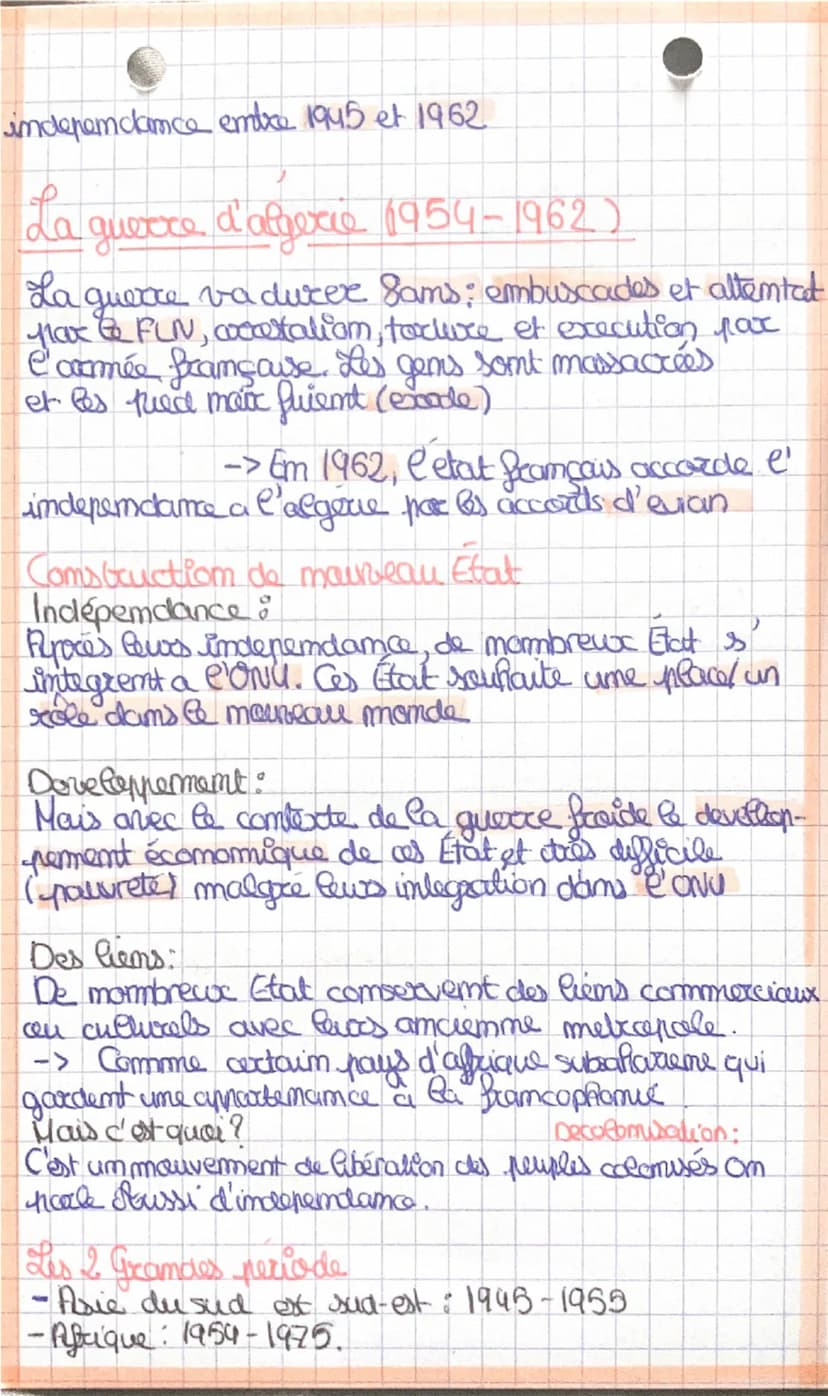 independance entre 1945 et 1962
La guerre d'algerie (1954-1962)
La guerre va durer 8ans : embuscades et attentat
par le FLN, arrestation, torture et execution par
l'armée française. Les gens sont massacrées
et les pied noir fuient (exode)
-> En 1962, l'état français accorde l'
independance a l'algérie par les accords d'evian
Construction de nouveau État
Indépendance :
Après leurs independance, de nombreux État s'
integrent a l'ONU. Ces État souhaite une place/un
rôle dans le nouveau monde
Developpement :
Mais avec le contexte de la guerre froide le develop-
pement économique de ces État et très difficile
(pauvreté) malgré leurs integration dans l'ONU
Des liens :
De nombreux Etat conservent des liens commerciaux
ou culturels avec leurs ancienne metropole.
-> Comme certain pays d'afrique subsaharienne qui
gardent une appartenance à la francophonie
Mais c'est quoi ? Decolonisation :
C'est un mouvement de libération des peuples colonisés on
parle aussi d'independance.
Les 2 Grandes période
- Asie du sud et sud-est : 1945-1955
- Afrique : 1954-1975.